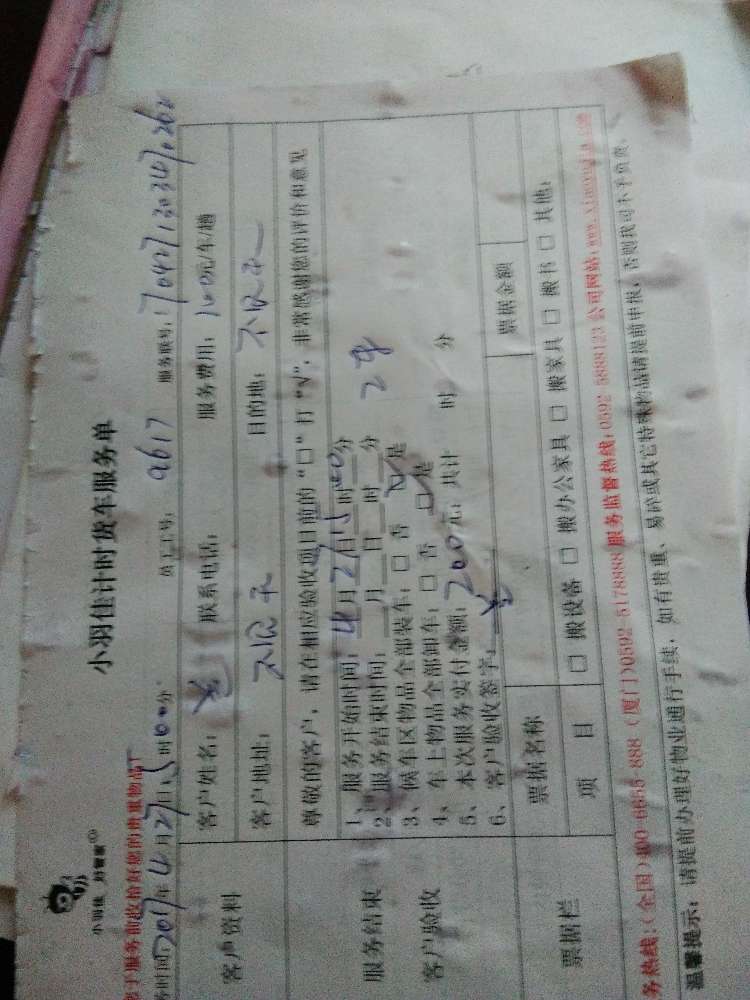 小羽佳 好管家
小羽佳计时货车服务单
于服务前收拾好您的贵重物品！
时间：2017年4月27日15时00分 员工工号：9617 服务联号：
客户资料
客户姓名： 联系电话： 服务费用：100元/车/趟
客户地址： 目的地：
尊敬的客户，请在相应验收项目前的“口”打“√”，非常感谢您的评价和意见
服务结束
客户验收
1、服务开始时间：4月27日15时00分
2、服务结束时间： 月 日 时 分
3、候车区物品全部装车：□ 否 □ 是
4、车上物品全部卸车：□ 否 □ 是
5、本次服务实付金额：200元；共计 时 分
6、客户验收签字：
票据栏
票据名称 票据金额
项 目 □ 搬设备 □ 搬办公家具 □ 搬家具 □ 搬书 □ 其他：
务热线：(全国)400-6655-888 (厦门)0592-5178888 服务监督热线：0592-5888123 公司网站：
温馨提示：请提前办理好物业通行手续，如有贵重、易碎或其它特殊物品请提前申报，否则我司不予负责。